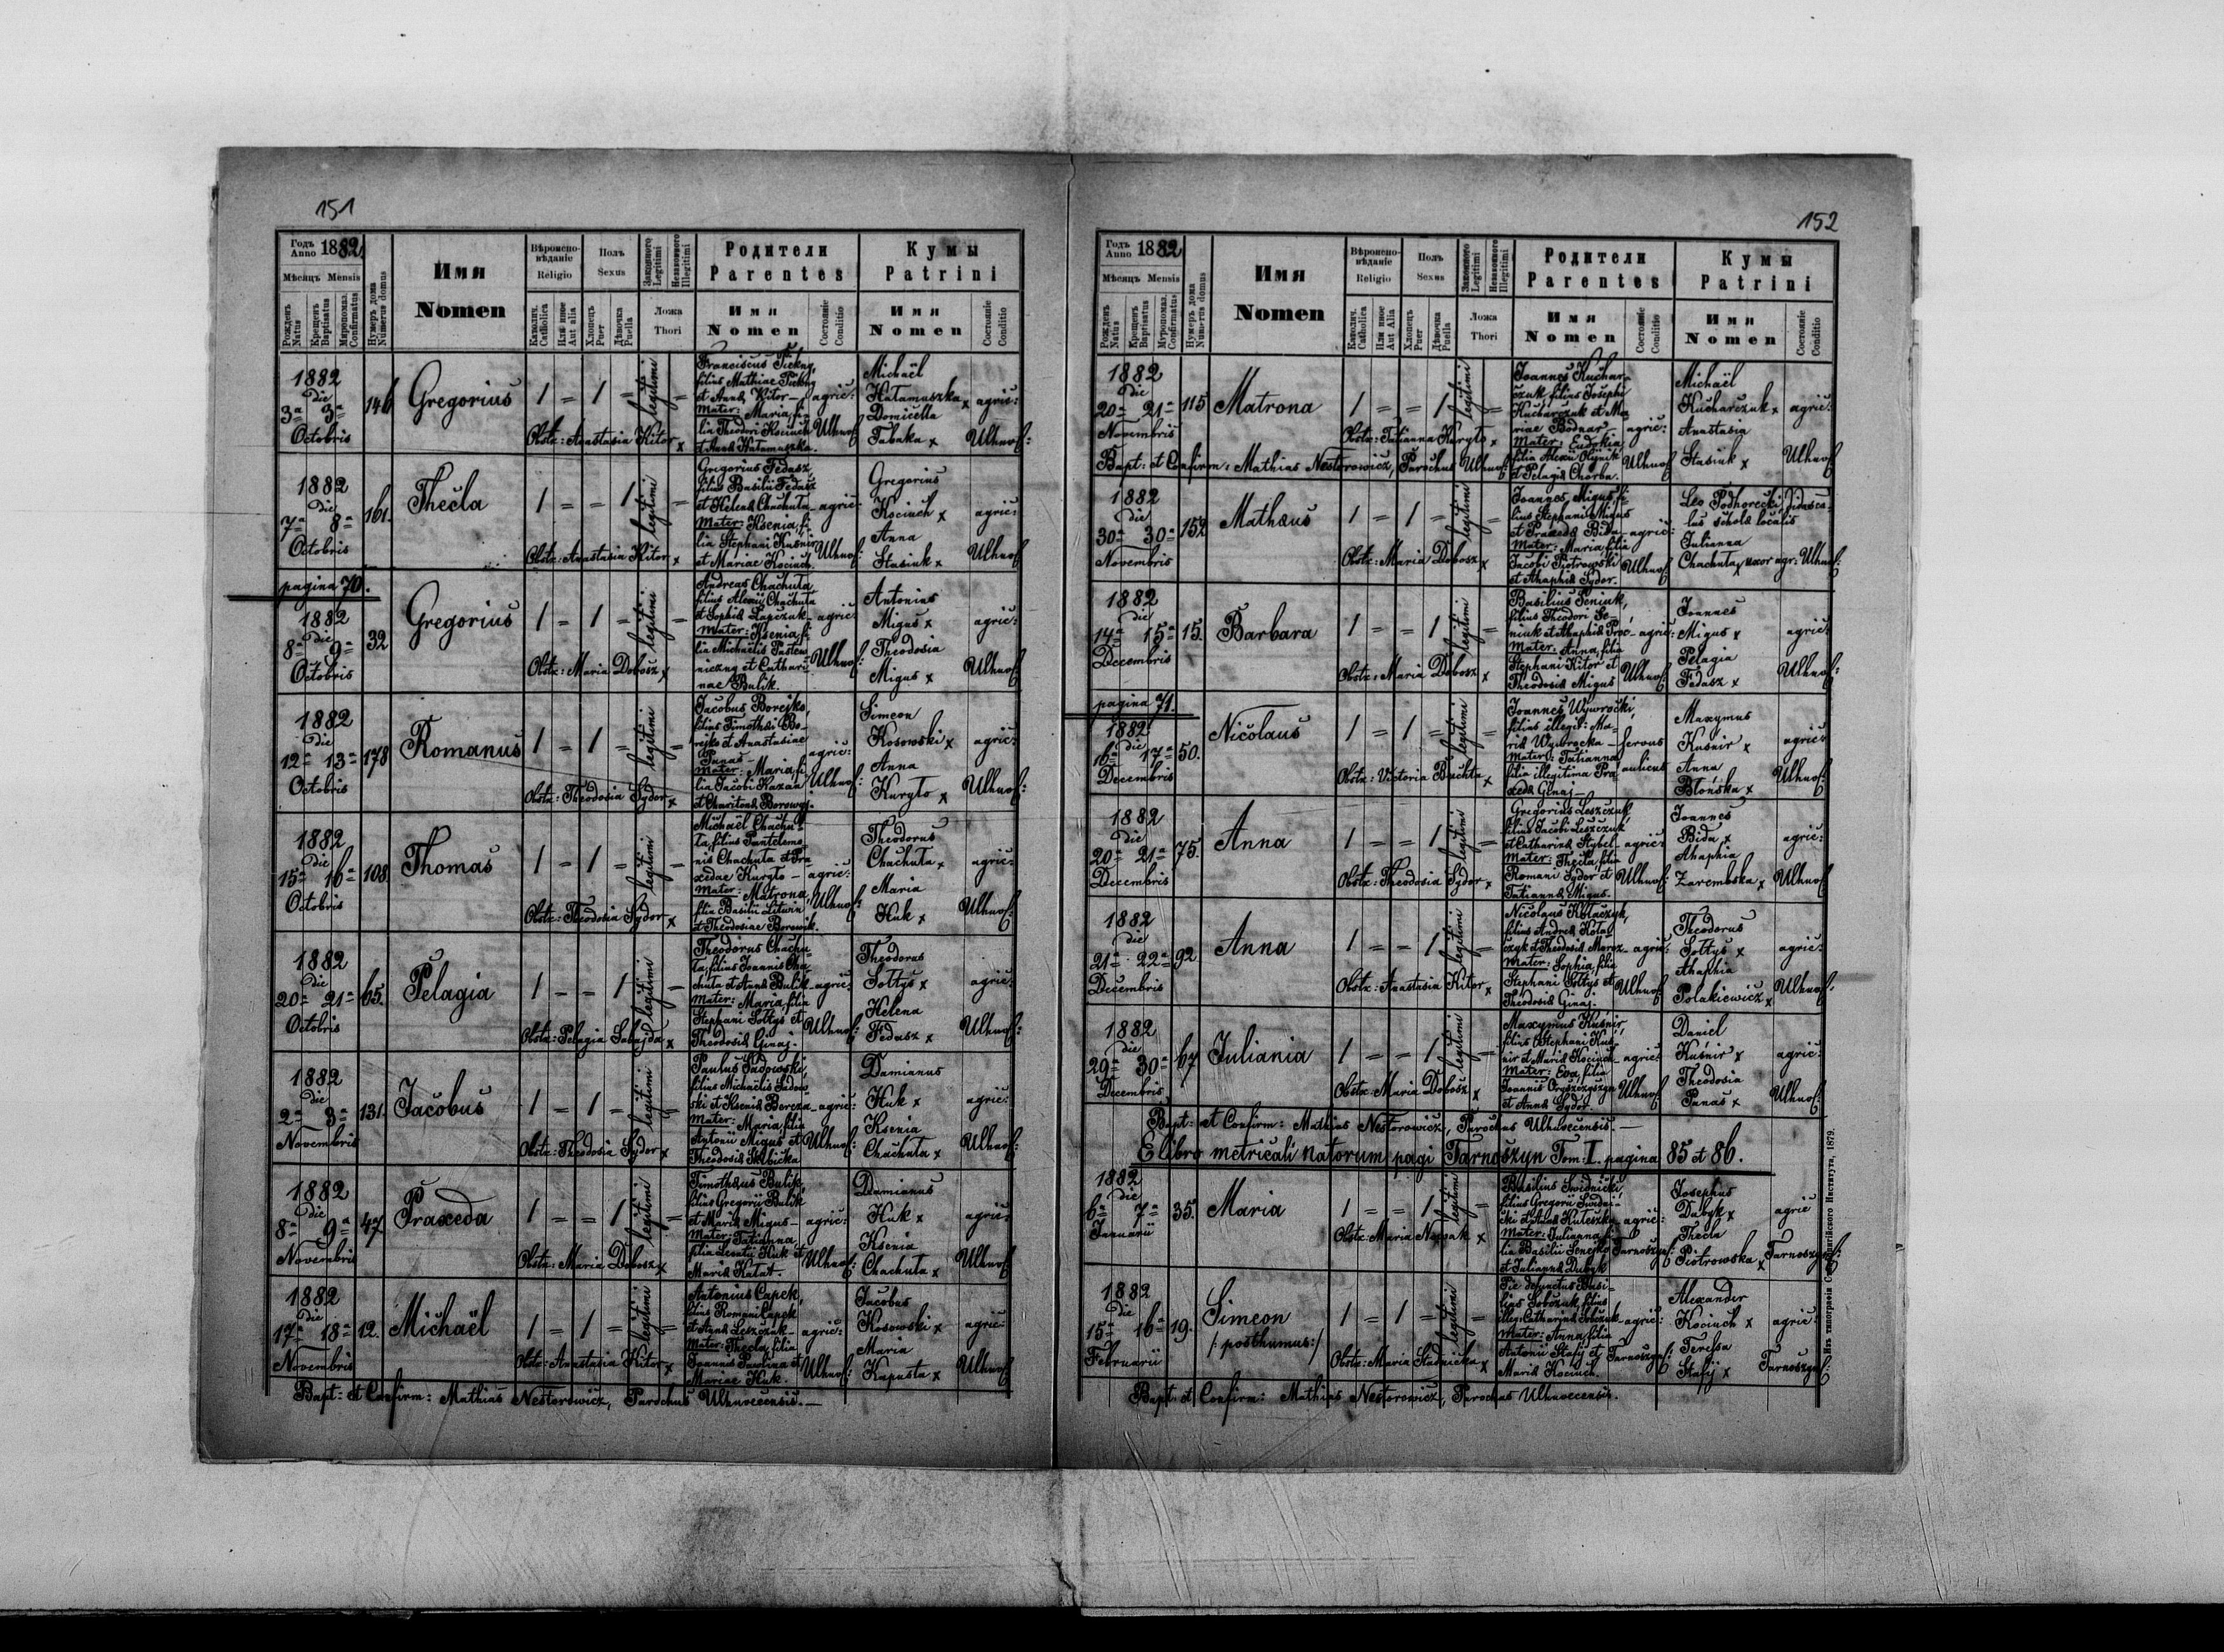 151
Годъ Anno 1882
Мѣсяцъ Mensis
Рожденъ Natus
Крещенъ Baptisatus
Миропомаз. Confirmatus
Нумеръ дома Numerus domus
Имя Nomen
Вѣроисповѣданіе Religio
Католич. Catholica
Или иное Aut Alia
Полъ Sexus
Хлопець Puer
Дѣвочка Puella
Законного Legitimi
Незаконного Illegitimi
Ложа Thori
Родители Parentes
Имя Nomen
Состояніе Conditio
Кумы Patrini
Имя Nomen
Состояніе Conditio
1882 die 3a 3a Octobris
146
Gregorius
1 = 1 = legitimi =
Obstx: Anastasia Kitor x
Franciscus
filius Mathiae
et Annae Kitor — agric:
Mater: Maria, fi-
lia Theodori Kociuch Ulhuof:
et Annae Hatamuszka.
Michaël
Hatamuszka x agric:
Domicella
Tabaka x Ulhuof:
1882 die 7a 8a Octobris
161.
Thecla
1 = = 1 legitimi =
Obstx: Anastasia Kitor x
Gregorius Fedasz,
filius Basilii Fedasz
et Helenae Chachuta — agric:
Mater: Ksenia, fi-
lia Stephani Kuśnir Ulhuof:
et Mariae Kociuch.
Gregorius
Kociuch x agric:
Anna
Stasiuk x Ulhuof:
pagina 70.
1882 die 8a 9a Octobris
32
Gregorius
1 = 1 = legitimi =
Obstx: Maria Dobosz x
Andreas Chachuta
filius Alexii Chachuta
et Sophiae Łapczuk — agric:
Mater: Ksenia, fi-
lia Michaelis
et Cathari- Ulhuof:
nae Bulik.
Antonius
Migus x agric:
Theodosia
Migus x Ulhuof:
1882 die 12a 13a Octobris
178
Romanus
1 = 1 = legitimi =
Obstx: Theodosia Sydor x
Jacobus Borejko,
filius Timothaei Bo-
rejko et Anastasiae
Panas — agric:
Mater: Maria, fi-
lia Jacobi Kazan Ulhuof:
et Charitonae Borowy.
Simeon
Kosowski x agric:
Anna
Kuryło x Ulhuof:
1882 die 15a 16a Octobris
108
Thomas
1 = 1 = legitimi =
Obstx: Theodosia Sydor x
Michaël Chachu-
ta, filius Pantelemo-
nis Chachuta et Pra-
xedae Kuryło — agric:
Mater: Matrona,
filia Basilii Litwin Ulhuof:
et Theodosiae Borowik.
Theodorus
Chachuta x agric:
Maria
Huk x Ulhuof:
1882 die 20a 21a Octobris
65.
Pelagia
1 = = 1 legitimi =
Obstx: Pelagia Sabajda x
Theodorus Chachu-
ta, filius Joannis Cha-
chuta et Annae Bulik — agric:
Mater: Maria, filia
Stephani Sołtys et Ulhuof:
Theodosiae Ginaj.
Theodorus
Sołtys x agric:
Helena
Fedasz x Ulhuof:
1882 die 2a 3a Novembris
131.
Jacobus
1 = 1 = legitimi =
Obstx: Theodosia Sydor x
Paulus Sadowski,
filius Michaelis Sadow-
ski et Kseniae Bereza — agric:
Mater: Maria, filia
Antonii Migus et Ulhuof:
Theodosiae Skibicka
Damianus
Huk x agric:
Ksenia
Chachuta x Ulhuof:
1882 die 8a 9a Novembris
47
Praxeda
1 = = 1 legitimi =
Obstx: Maria Dobosz x
Timothaeus Bulik,
filius Gregorii Bulik
et Mariae Migus — agric:
Mater: Tatianna,
filia Leontii Huk et Ulhuof:
Mariae Kałat.
Damianus
Huk x agric:
Ksenia
Chachuta x Ulhuof:
1882 die 17a 18a Novembris
12.
Michaël
1 = 1 = legitimi =
Obstx: Anastasia Kitor x
Antonius Capek,
filius Romani Capek
et Annae Leszczuk — agric:
Mater: Thecla, filia
Joannis Pawlina et Ulhuof:
Mariae Huk.
Jacobus
Kosowski x agric:
Maria
Kapusta x Ulhuof:
Bapt: et Confirm: Mathias Nestorowicz, Parochus Ulhuvecensis. —
152
Годъ Anno 1882
Мѣсяцъ Mensis
Рожденъ Natus
Крещенъ Baptisatus
Муропомаз. Confirmatus
Нумеръ дома Numerus domus
Имя Nomen
Вѣроисповѣданіе Religio
Католич. Catholica
Или иное Aut Alia
Полъ Sexus
Хлопець Puer
Дѣвочка Puella
Законного Legitimi
Незаконного Illegitimi
Ложа Thori
Родители Parentes
Имя Nomen
Состояніе Conditio
Кумы Patrini
Имя Nomen
Состояніе Conditio
1882 die 20a 21a Novembris
115
Matrona
1 = = 1 legitimi =
Obstx: Tatianna Kuryło x
Joannes Kuchar-
czuk filius Josephi
Kucharczuk et Ma-
riae Bodnar — agric:
Mater: Eudokia,
filia Alexii Olijnik Ulhuof:
et Pelagiae Chorba.
Michaël
Kucharczuk x agric:
Anastasia
Stasiuk x Ulhuof:
Bapt: et Confirm: Mathias Nestorowicz, Parochus Ulhuof:
1882 die 30a 30a Novembris
152
Mathaeus
1 = 1 = legitimi =
Obstx: Maria Dobosz x
Joannes Migus, fi-
lius Stephani Migus
et Praxedae Bida — agric:
Mater: Maria, filia
Jacobi Piotrowski Ulhuof:
et Ahaphiae Sydor.
Leo Podhorecki, Didasca-
lus scholae localis
Julianna
Chachuta x uxor agr: Ulhuof:
1882 die 14a 15a Decembris
15.
Barbara
1 = = 1 legitimi =
Obstx: Maria Dobosz x
Basilius Seniuk,
filius Theodori Se-
niuk et Ahaphiae — agric:
Mater: Anna, filia
Stephani Kitor et Ulhuof:
Theodosiae Migus
Joannes
Migus x agric:
Pelagia
Fedasz x Ulhuof:
pagina 71.
1882 die 16a 17a Decembris
50.
Nicolaus
1 = 1 = legitimi =
Obstx: Victoria Buchta x
Joannes Wywrocki,
filius illegit: Ma-
riae Wywrocka — servus
Mater: Tatianna, aulicus
filia illegitima Pra-
xedae Ginaj —
Maxymus
Kuśnir x agric:
Anna
Błońska x Ulhuof:
1882 die 20a 21a Decembris
75.
Anna
1 = = 1 legitimi =
Obstx: Theodosia Sydor x
Gregorius Leszczuk,
filius Jacobi Leszczuk
et Catharinae Hybel — agric:
Mater: Thecla, filia
Romani Sydor et Ulhuof:
Tatiannae Migus.
Joannes
Bida x agric:
Ahaphia
Zarembska x Ulhuof:
1882 die 21a 22a Decembris
92
Anna
1 = = 1 legitimi =
Obstx: Anastasia Kitor x
Nicolaus Kołaczyk,
filius Andreae Koła-
czyk et Theodosiae Moroz — agric:
Mater: Sophia, filia
Stephani Sołtys et Ulhuof:
Theodosiae Ginaj.
Theodorus
Sołtys x agric:
Ahaphia
Polakiewicz x Ulhuof:
1882 die 29a 30a Decembris
67
Juliania
1 = = 1 legitimi =
Obstx: Maria Dobosz x
Maxymus Kuśnir,
filius Stephani Kuś-
nir et Mariae Kociuch — agric:
Mater: Eva, filia
Joannis Ulhuof:
et Annae Sydor.
Daniel
Kuśnir x agric:
Theodosia
Panas x Ulhuof:
Bapt: et Confirm: Mathias Nestorowicz, Parochus Ulhuvecensis. —
E libro metricali Natorum pagi Tarnoszyn Tom: I. pagina 85 et 86.
1882 die 6a 7a Januarii
35.
Maria
1 = = 1 legitimi =
Obstx: Maria Nowak x
Basilius Swidnicki,
filius Gregorii Swidni-
cki et — agric:
Mater: Julianna, fi-
lia Basilii Senejko Tarnoszyn:
et Juliannae Dubyk
Josephus
Dubyk x agric
Thecla
Piotrowska x Tarnoszyn:
1882 die 15a 16a Februarii
19.
Simeon
/: posthumus :/
1 = 1 = legitimi =
Obstx: Maria Studnicka x
Pie defunctus Basi-
lius Sobczuk, filius
illeg: Catharinae Sobczuk — agric:
Mater: Anna, filia
Antonii Stafij et Tarnoszyn:
Mariae Kociuch.
Alexander
Kociuch x agric:
Teresa
Stafij x Tarnoszyn:
Bapt: et Confirm: Mathias Nestorowicz, Parochus Ulhuvecensis.
Изъ типографіи Ставропигійского Института, 1879.